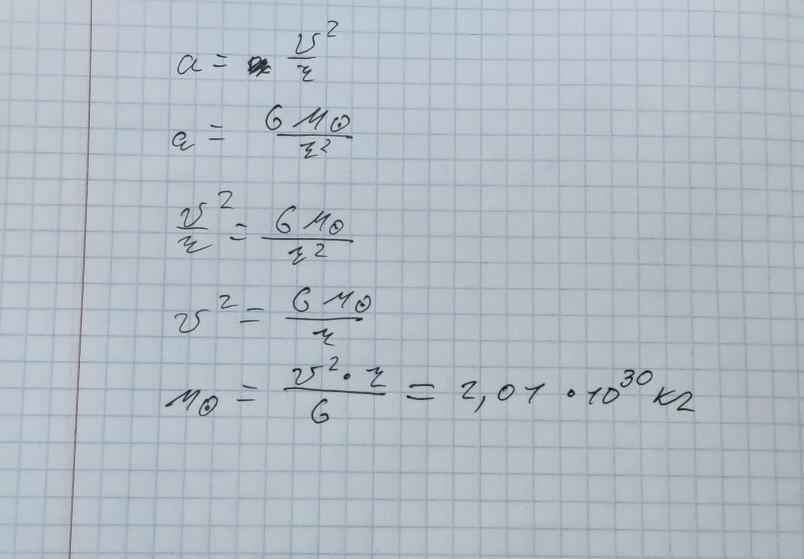 a = v²/r
a = GM⊙/r²
v²/r = GM⊙/r²
v² = GM⊙/r
M⊙ = v²·r/G = 2,01 · 10³⁰ кг